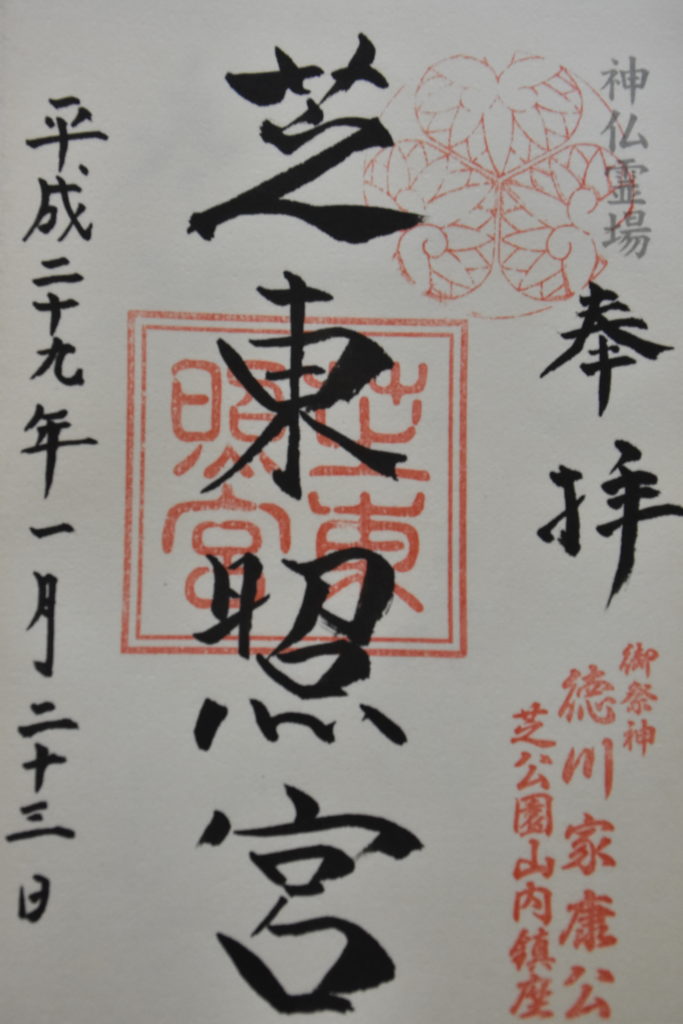 神仏霊場
奉拝
御祭神
徳川家康公
芝公園山内鎮座
芝東照宮
芝東
照宮
平成二十九年一月二十三日